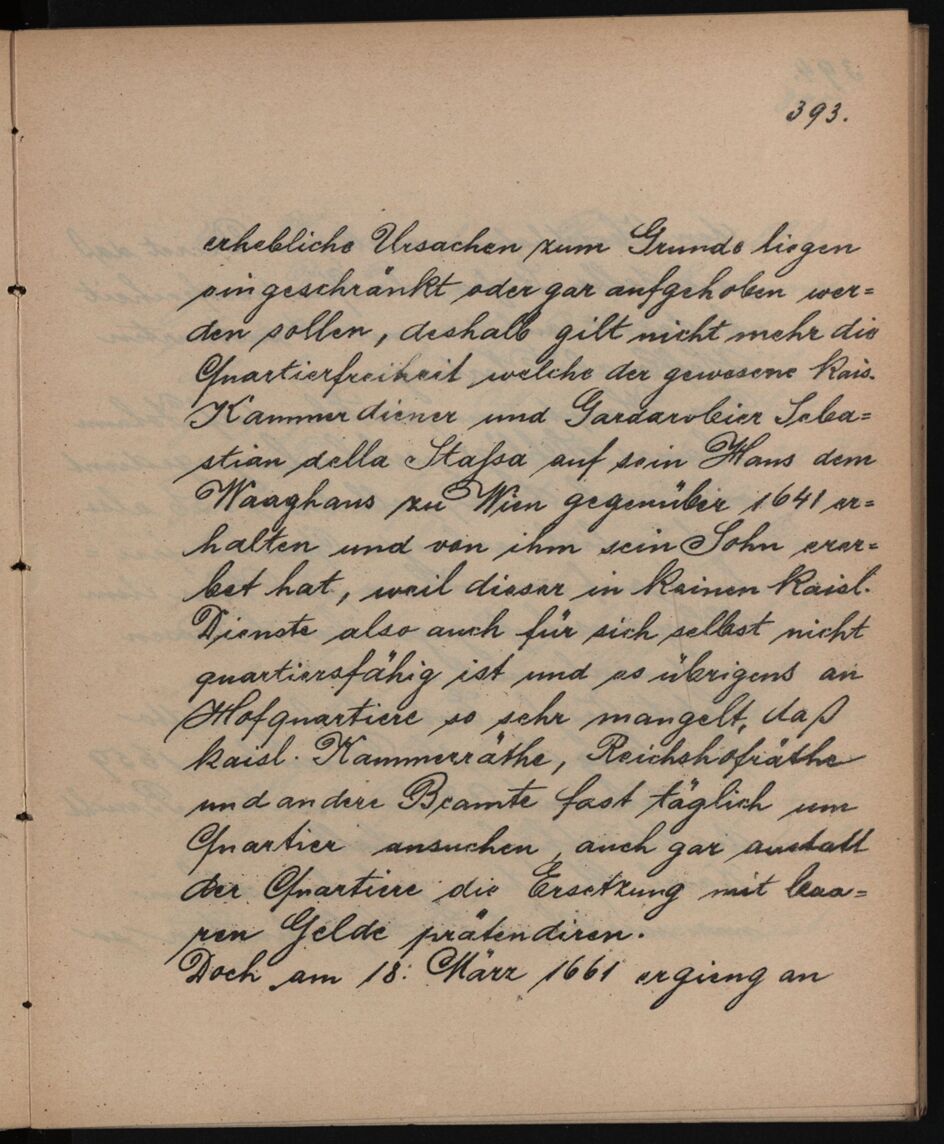 393.
erhebliche Ursachen zum Grunde liegen
eingeschränkt oder gar aufgehoben wer=
den sollen, deshalb gilt nicht mehr die
Quartierfreiheit welche der gewesene kais.
Kammerdiener und Gardarobier Seba=
stian della Staßa auf sein Haus dem
Waaghaus zu Wien gegenüber 1641 er=
halten und von ihm sein Sohn erer=
bet hat, weil dieser in keinen kaisl.
Dienste also auch für sich selbst nicht
quartiersfähig ist und es übrigens an
Hofquartiere so sehr mangelt, daß
kaisl. Kammerräthe, Reichshofräthe
und andere Beamte fast täglich um
Quartier ansuchen, auch gar anstatt
der Quartiere die Ersetzung mit baa=
ren Gelde prätendiren.
Doch am 18. März 1661 ergieng an